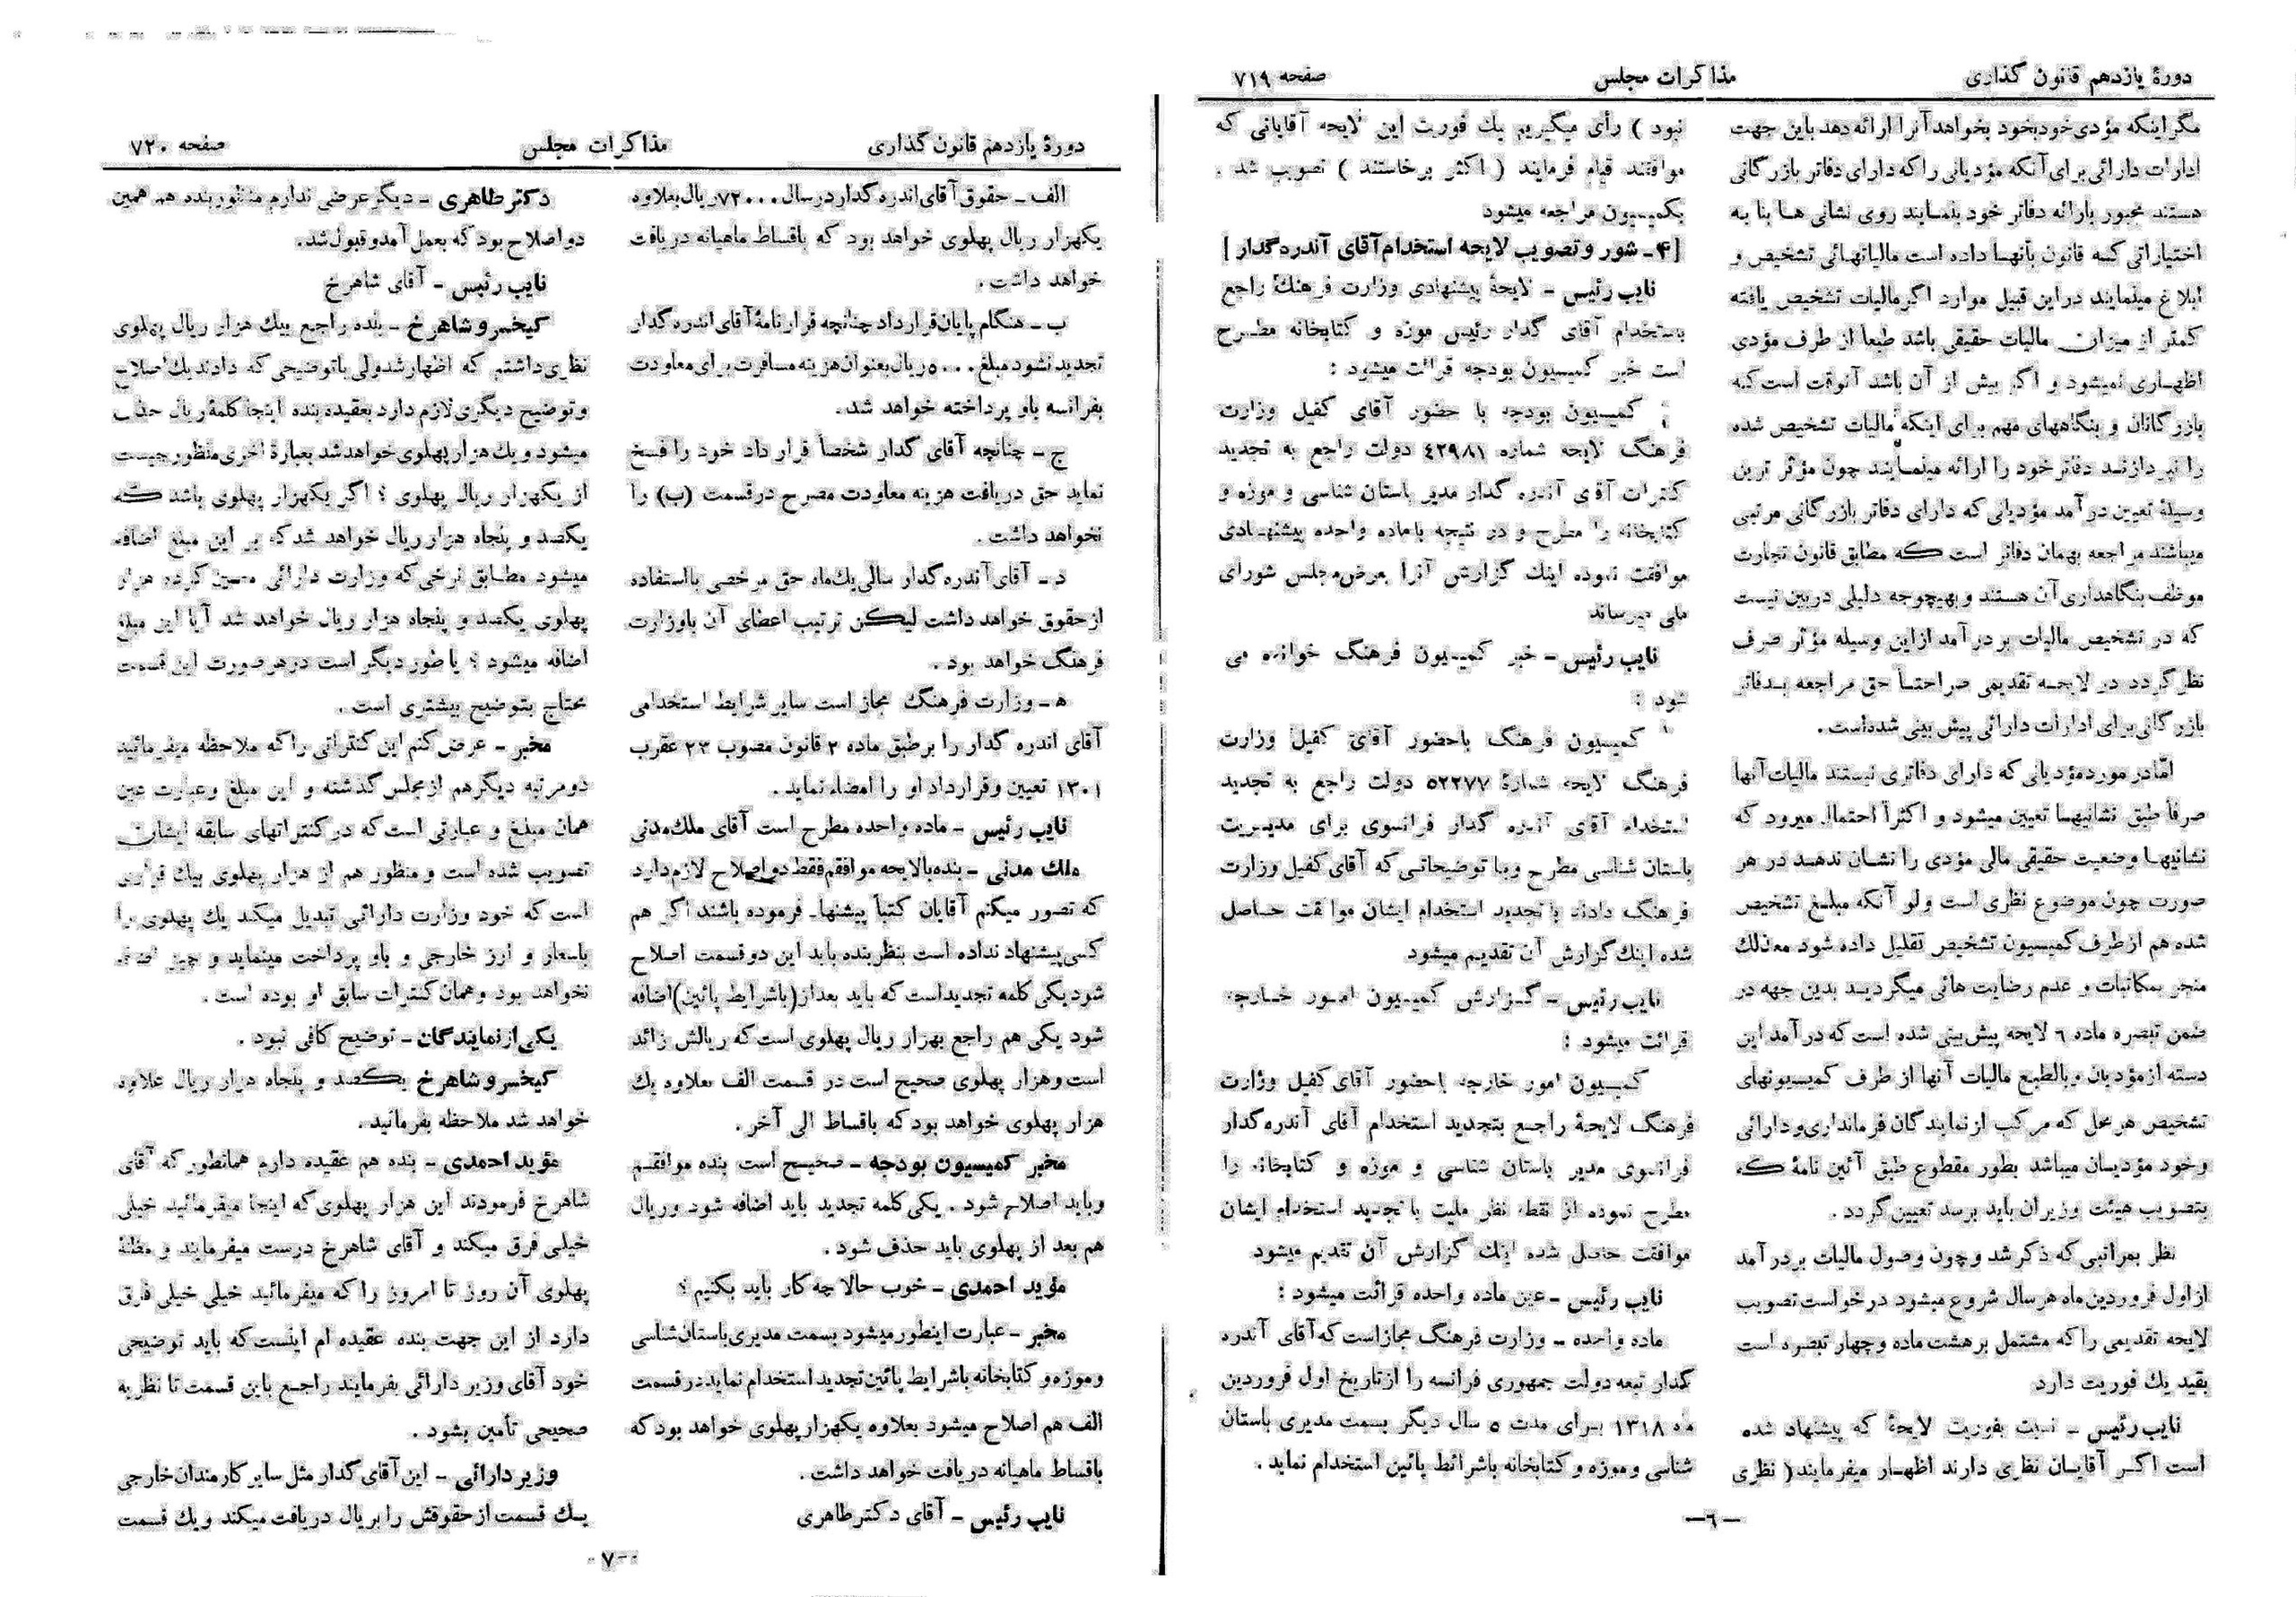 دورهٔ یازدهم قانون گذاری
مذاکرات مجلس
صفحه ۷۱۹
مگر اینکه مؤدی خودبخود بخواهد آنرا ارائه دهد باین جهت
ادارات دارائی برای آنکه مؤدیانی را که دارای دفاتر بازرگانی
هستند مجبور بارائه دفاتر خود بنمایند روی نشانی ها بنا به
اختیاراتی که قانون بآنها داده است مالیاتهائی تشخیص و
ابلاغ مینمایند در این قبیل موارد اگر مالیات تشخیص یافته
کمتر از میزان مالیات حقیقی باشد طبعاً از طرف مؤدی
اظهاری نمیشود و اگر بیش از آن باشد آنوقت است که
بازرگانان و بنگاههای مهم برای اینکه مالیات تشخیص شده
را نپردازند دفاتر خود را ارائه مینمایند چون مؤثر ترین
وسیلهٔ تعیین درآمد مؤدیانی که دارای دفاتر بازرگانی مرتبی
میباشند مراجعه بهمان دفاتر است که مطابق قانون تجارت
موظف بنگاهداری آن هستند و بهیچوجه دلیلی در بین نیست
که در تشخیص مالیات بر درآمد از این وسیله مؤثر صرف
نظر گردد در لایحه تقدیمی صراحتاً حق مراجعه بدفاتر
بازرگانی برای ادارات دارائی پیش بینی شده است .
امّا در مورد مؤدیانی که دارای دفاتری نیستند مالیات آنها
صرفاً طبق نشانیها تعیین میشود و اکثراً احتمال میرود که
نشانیها وضعیت حقیقی مالی مؤدی را نشان ندهد در هر
صورت چون موضوع نظری است ولو آنکه مبلغ تشخیص
شده هم از طرف کمیسیون تشخیص تقلیل داده شود معذلك
منجر بمکاتبات و عدم رضایت هائی میگردید بدین جهه در
ضمن تبصره ماده ٦ لایحه پیش بینی شده است که درآمد این
دسته از مؤدیان و بالطبع مالیات آنها از طرف کمیسیونهای
تشخیص هر محل که مرکب از نمایندگان فرمانداری و دارائی
و خود مؤدیان میباشد بطور مقطوع طبق آئین نامهٔ که
بتصویب هیئت وزیران باید برسد تعیین گردد .
نظر بمراتبی که ذکر شد و چون وصول مالیات بر درآمد
از اول فروردین ماه هر سال شروع میشود درخواست تصویب
لایحه تقدیمی را که مشتمل بر هشت ماده و چهار تبصره است
بقید یك فوریت دارد
نایب رئیس – نسبت بفوریت لایحهٔ که پیشنهاد شده
است اگر آقایان نظری دارند اظهار میفرمایند ( نظری
نبود ) رأی میگیریم بیك فوریت این لایحه آقایانی که
موافقند قیام فرمایند ( اکثر برخاستند ) تصویب شد .
بکمیسیون مراجعه میشود
[۴ – شور و تصویب لایحه استخدام آقای آندره گدار ]
نایب رئیس – لایحهٔ پیشنهادی وزارت فرهنك راجع
باستخدام آقای گدار رئیس موزه و کتابخانه مطرح
است خبر کمیسیون بودجه قرائت میشود :
کمیسیون بودجه با حضور آقای کفیل وزارت
فرهنگ لایحه شماره ٤٢٩٨١ دولت راجع به تجدید
کنترات آقای آندره گدار مدیر باستان شناسی و موزه و
کتابخانه را مطرح و در نتیجه با ماده واحده پیشنهادی
موافقت نموده اینك گزارش آنرا بعرض مجلس شورای
ملی میرساند
نایب رئیس – خبر کمیسیون فرهنگ خوانده می
شود :
کمیسیون فرهنگ با حضور آقای کفیل وزارت
فرهنگ لایحه شمارهٔ ٥٢٢٧٧ دولت راجع به تجدید
استخدام آقای آندره گدار فرانسوی برای مدیریت
باستان شناسی مطرح و با توضیحاتی که آقای کفیل وزارت
فرهنگ دادند با تجدید استخدام ایشان موافقت حاصل
شده اینك گزارش آن تقدیم میشود
نایب رئیس – گزارش کمیسیون امور خارجه
قرائت میشود :
کمیسیون امور خارجه با حضور آقای کفیل وزارت
فرهنگ لایحهٔ راجع بتجدید استخدام آقای آندره گدار
فرانسوی مدیر باستان شناسی و موزه و کتابخانه را
مطرح نموده از نقطه نظر ملیت با تجدید استخدام ایشان
موافقت حاصل شده اینك گزارش آن تقدیم میشود
نایب رئیس – عین ماده واحده قرائت میشود :
ماده واحده – وزارت فرهنگ مجاز است که آقای آندره
گدار تبعه دولت جمهوری فرانسه را از تاریخ اول فروردین
ماه ۱۳۱۸ برای مدت ٥ سال دیگر بسمت مدیری باستان
شناسی و موزه و کتابخانه با شرائط پائین استخدام نماید .
–٦–
دورهٔ یازدهم قانون گذاری
مذاکرات مجلس
صفحه ۷۲۰
الف – حقوق آقای اندره گدار در سال ۷۲۰۰۰ ریال بعلاوه
یکهزار ریال پهلوی خواهد بود که باقساط ماهیانه دریافت
خواهد داشت .
ب – هنگام پایان قرارداد چنانچه قرارنامهٔ آقای اندره گدار
تجدید نشود مبلغ ٥٠٠٠ ریال بعنوان هزینه مسافرت برای معاودت
بفرانسه باو پرداخته خواهد شد .
ج – چنانچه آقای گدار شخصاً قرارداد خود را فسخ
نماید حق دریافت هزینه معاودت مصرح در قسمت (ب) را
نخواهد داشت .
د – آقای آندره گدار سالی یك ماه حق مرخصی با استفاده
از حقوق خواهد داشت لیکن ترتیب اعطای آن با وزارت
فرهنگ خواهد بود .
ه – وزارت فرهنگ مجاز است سایر شرایط استخدامی
آقای اندره گدار را بر طبق ماده ۲ قانون مصوب ۲۳ عقرب
۱۳۰۱ تعیین و قرارداد او را امضاء نماید .
نایب رئیس – ماده واحده مطرح است آقای ملك مدنی
ملك مدنی – بنده با لایحه موافقم فقط دو اصلاح لازم دارد
که تصور میکنم آقایان کتباً پیشنهاد فرموده باشند اگر هم
کسی پیشنهاد نداده است بنظر بنده باید این دو قسمت اصلاح
شود یکی کلمه تجدید است که باید بعد از (با شرایط پائین) اضافه
شود یکی هم راجع بهزار ریال پهلوی است که ریالش زائد
است و هزار پهلوی صحیح است در قسمت الف بعلاوه یك
هزار پهلوی خواهد بود که باقساط الی آخر .
مخبر کمیسیون بودجه – صحیح است بنده موافقم
و باید اصلاح شود . یکی کلمه تجدید باید اضافه شود و ریال
هم بعد از پهلوی باید حذف شود .
مؤید احمدی – خوب حالا چه کار باید بکنیم ؟
مخبر – عبارت اینطور میشود بسمت مدیری باستان شناسی
و موزه و کتابخانه با شرایط پائین تجدید استخدام نماید در قسمت
الف هم اصلاح میشود بعلاوه یکهزار پهلوی خواهد بود که
باقساط ماهیانه دریافت خواهد داشت .
نایب رئیس – آقای دکتر طاهری
دکتر طاهری – دیگر عرضی ندارم منظور بنده هم همین
دو اصلاح بود که بعمل آمد و قبول شد.
نایب رئیس – آقای شاهرخ
کیخسرو شاهرخ – بنده راجع بیك هزار ریال پهلوی
نظری داشتم که اظهار شد ولی با توضیحی که دادند یك اصلاح
و توضیح دیگری لازم دارد بعقیده بنده اینجا کلمهٔ ریال حذف
میشود و یك هزار پهلوی خواهد شد بعبارة اخری منظور چیست
از یکهزار ریال پهلوی ؟ اگر یکهزار پهلوی باشد که
یکصد و پنجاه هزار ریال خواهد شد که بر این مبلغ اضافه
میشود مطابق نرخی که وزارت دارائی معین کرده هزار
پهلوی یکصد و پنجاه هزار ریال خواهد شد آیا این مبلغ
اضافه میشود ؟ یا طور دیگر است در هر صورت این قسمت
محتاج بتوضیح بیشتری است .
مخبر – عرض کنم این کنتراتی را که ملاحظه میفرمائید
دو مرتبه دیگر هم از مجلس گذشته و این مبلغ و عبارت عین
همان مبلغ و عبارتی است که در کنتراتهای سابقه ایشان
تصویب شده است و منظور هم از هزار پهلوی بیك قراری
است که خود وزارت دارائی تبدیل میکند یك پهلوی را
باسعار و ارز خارجی و باو پرداخت مینماید و چیز اضافه
نخواهد بود و همان کنترات سابق او بوده است .
یکی از نمایندگان – توضیح کافی نبود .
کیخسرو شاهرخ یکصد و پنجاه هزار ریال علاوه
خواهد شد ملاحظه بفرمائید .
مؤید احمدی – بنده هم عقیده دارم همانطور که آقای
شاهرخ فرمودند این هزار پهلوی که اینجا میفرمائید خیلی
خیلی فرق میکند و آقای شاهرخ درست میفرمایند و مظنهٔ
پهلوی آن روز تا امروز را که میفرمائید خیلی خیلی فرق
دارد از این جهت بنده عقیده ام اینست که باید توضیحی
خود آقای وزیر دارائی بفرمایند راجع باین قسمت تا نظریه
صحیحی تأمین بشود .
وزیر دارائی – این آقای گدار مثل سایر کارمندان خارجی
یك قسمت از حقوقش را بریال دریافت میکند و یك قسمت
–۷–